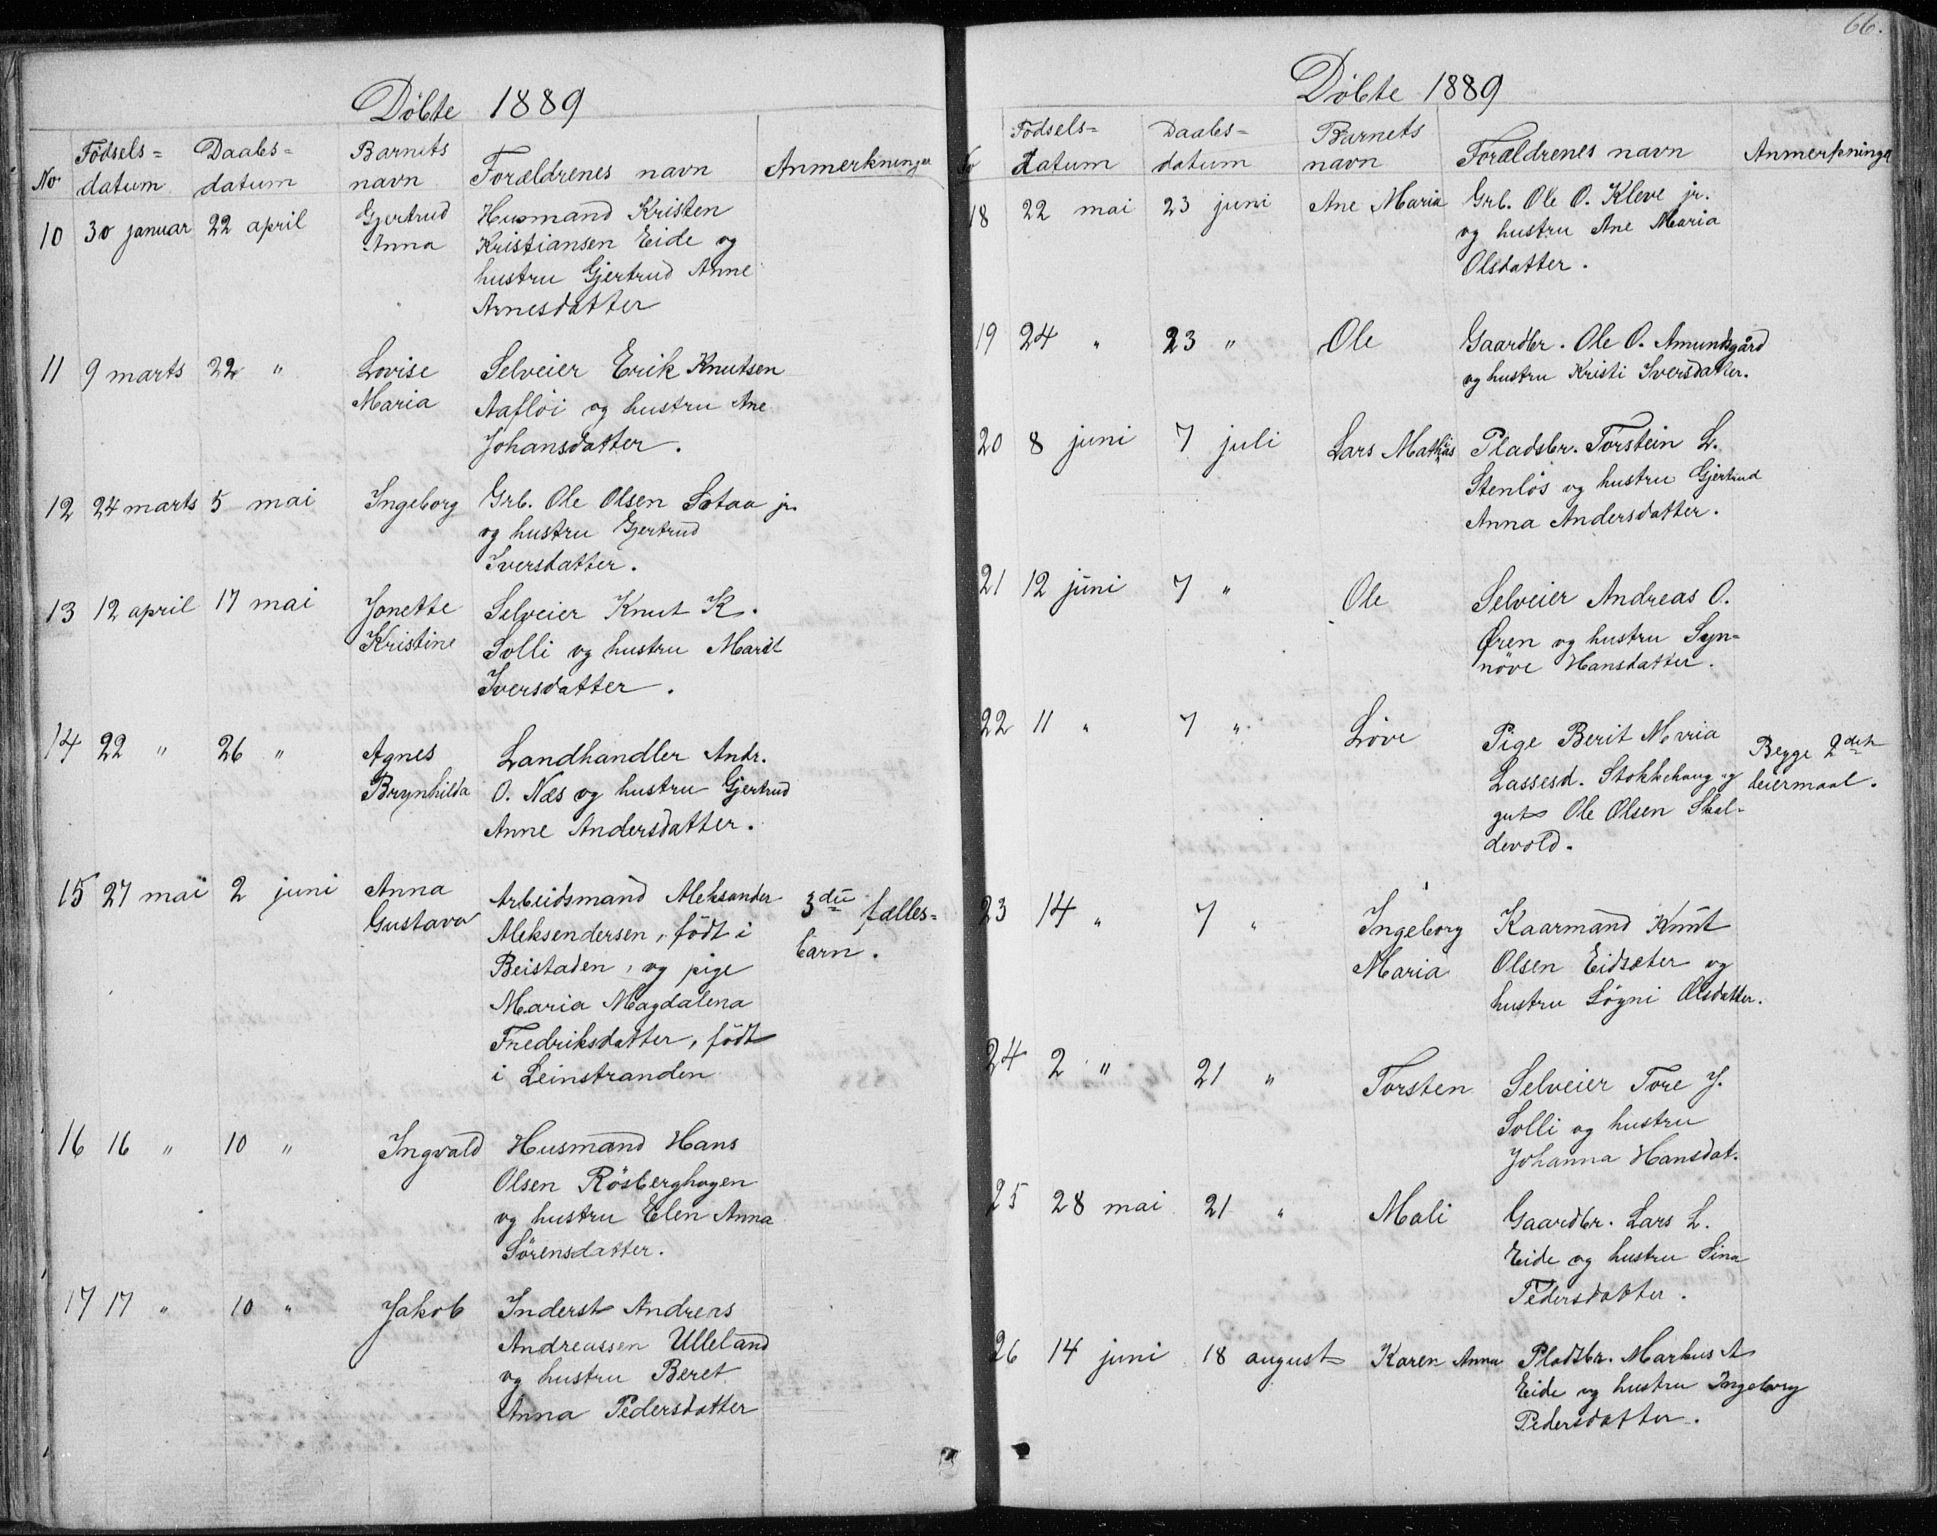 Döbte 1889
No. Födsels= datum. Daabs= datum Barnets navn Forældrenes navn Anmerkninger
10 30 januar 22 april Gjertrud Husmand Kristen
Anna Kristiansen Eide og
hustru Gjertrud Anne
Arnesdatter
11 9 marts 22 " Lovise Selveier Erik Knutsen
Maria Aaflöi og hustru Ane
Johansdatter.
12 24 marts 5 mai Ingeborg Grb. Ole Olsen Sotaa jr.
og hustru Gjertrud
Iversdatter.
13 12 april 17 mai Jonette Selveier Knut K.
Kristine Solli og hustru Marit
Iversdatter.
14 22 " 26 " Agnes Landhandler Andr.
Brynhilda O. Næs og hustru Gjertrud
Anne Andersdatter.
15 27 mai 2 juni Anna Arbeidsmand Aleksander 3die fælles=
Gustava Aleksendersen, födt i barn.
Beistaden, og pige
Maria Magdalena
Fredriksdatter, födt
i Leinstranden
16 16 " 10 " Ingvald Husmand Hans
Olsen Rösberghagen
og hustru Elen Anna
Sörensdatter.
17 17 " 10 " Jakob Inderst Andreas
Andreassen Ulleland
og hustru Beret
Anna Pedersdatter
66.
Döbte 1889
No Födsels= datum Daabs= datum Barnets navn Forældrenes navn Anmerkninge
18 22 mai 23 juni Ane Maria Grb. Ole O. Kleve jr.
og hustru Ane Maria
Olsdatter.
19 24 " 23 " Ole Gaardbr. Ole O. Amundsgård
og hustru Kristi Iversdatter.
20 8 juni 7 juli Lars Mathias Pladsbr. Torstein L.
Stenlös og hustru Gjertrud
Anna Andersdatter.
21 12 juni 7 " Ole Selveier Andreas O.
Øren og hustru Syn=
növe Hansdatter.
22 11 " 7 " Löve Pige Berit Maria Begge 2det
Lassesd. Stokkehaug og leiermaal.
gut Ole Olsen Skal-
devold.
23 14 " 7 " Ingeborg Kaarmand Knut
Maria Olsen Eidsæter og
hustru Lögni Olsdatter.
24 2 " 21 " Torsten Selveier Tore J.
Solli og hustru
Johanna Hansdat.
25 28 mai 21 " Mali Gaardbr. Lars L.
Eide og hustru Sina
Pedersdatter.
26 14 juni 18 august Karen Anna Pladsbr. Markus A
Eide og hustru Ingeborg
Pedersdatter.